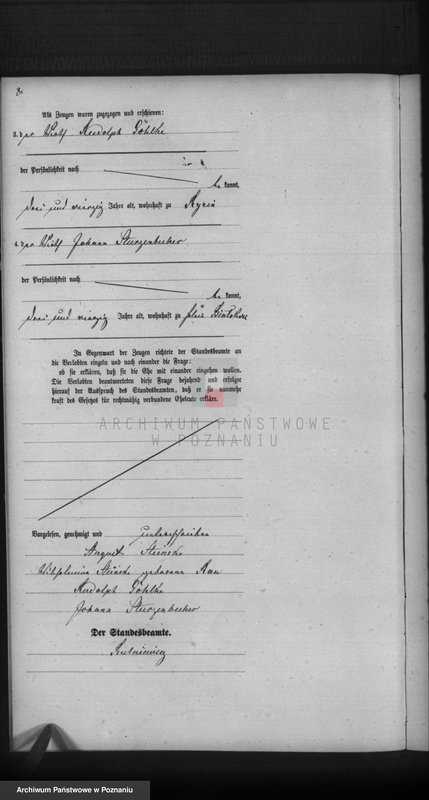 8.
Als Zeugen waren zugezogen und erschienen:
3. der Wirth Rudolph Göhlke
der Persönlichkeit nach
be kannt,
drei und vierzig Jahre alt, wohnhaft zu
4. der Wirth Johann Sturzenbecher
der Persönlichkeit nach
be kannt,
drei und vierzig Jahre alt, wohnhaft zu
In Gegenwart der Zeugen richtete der Standesbeamte an
die Verlobten einzeln und nach einander die Frage:
ob sie erklären, daß sie die Ehe mit einander eingehen wollen.
Die Verlobten beantworteten diese Frage bejahend und erfolgte
hierauf der Ausspruch des Standesbeamten, daß er sie nunmehr
kraft des Gesetzes für rechtmäßig verbundene Eheleute erkläre.
ARCHIWUM PAŃSTWOWE
W POZNANIU
Vorgelesen, genehmigt und unterschrieben
August Steinke
Wilhelmine Steinke geborene Rau
Rudolph Göhlke
Johann Sturzenbecher
Der Standesbeamte.
Archiwum Państwowe w Poznaniu